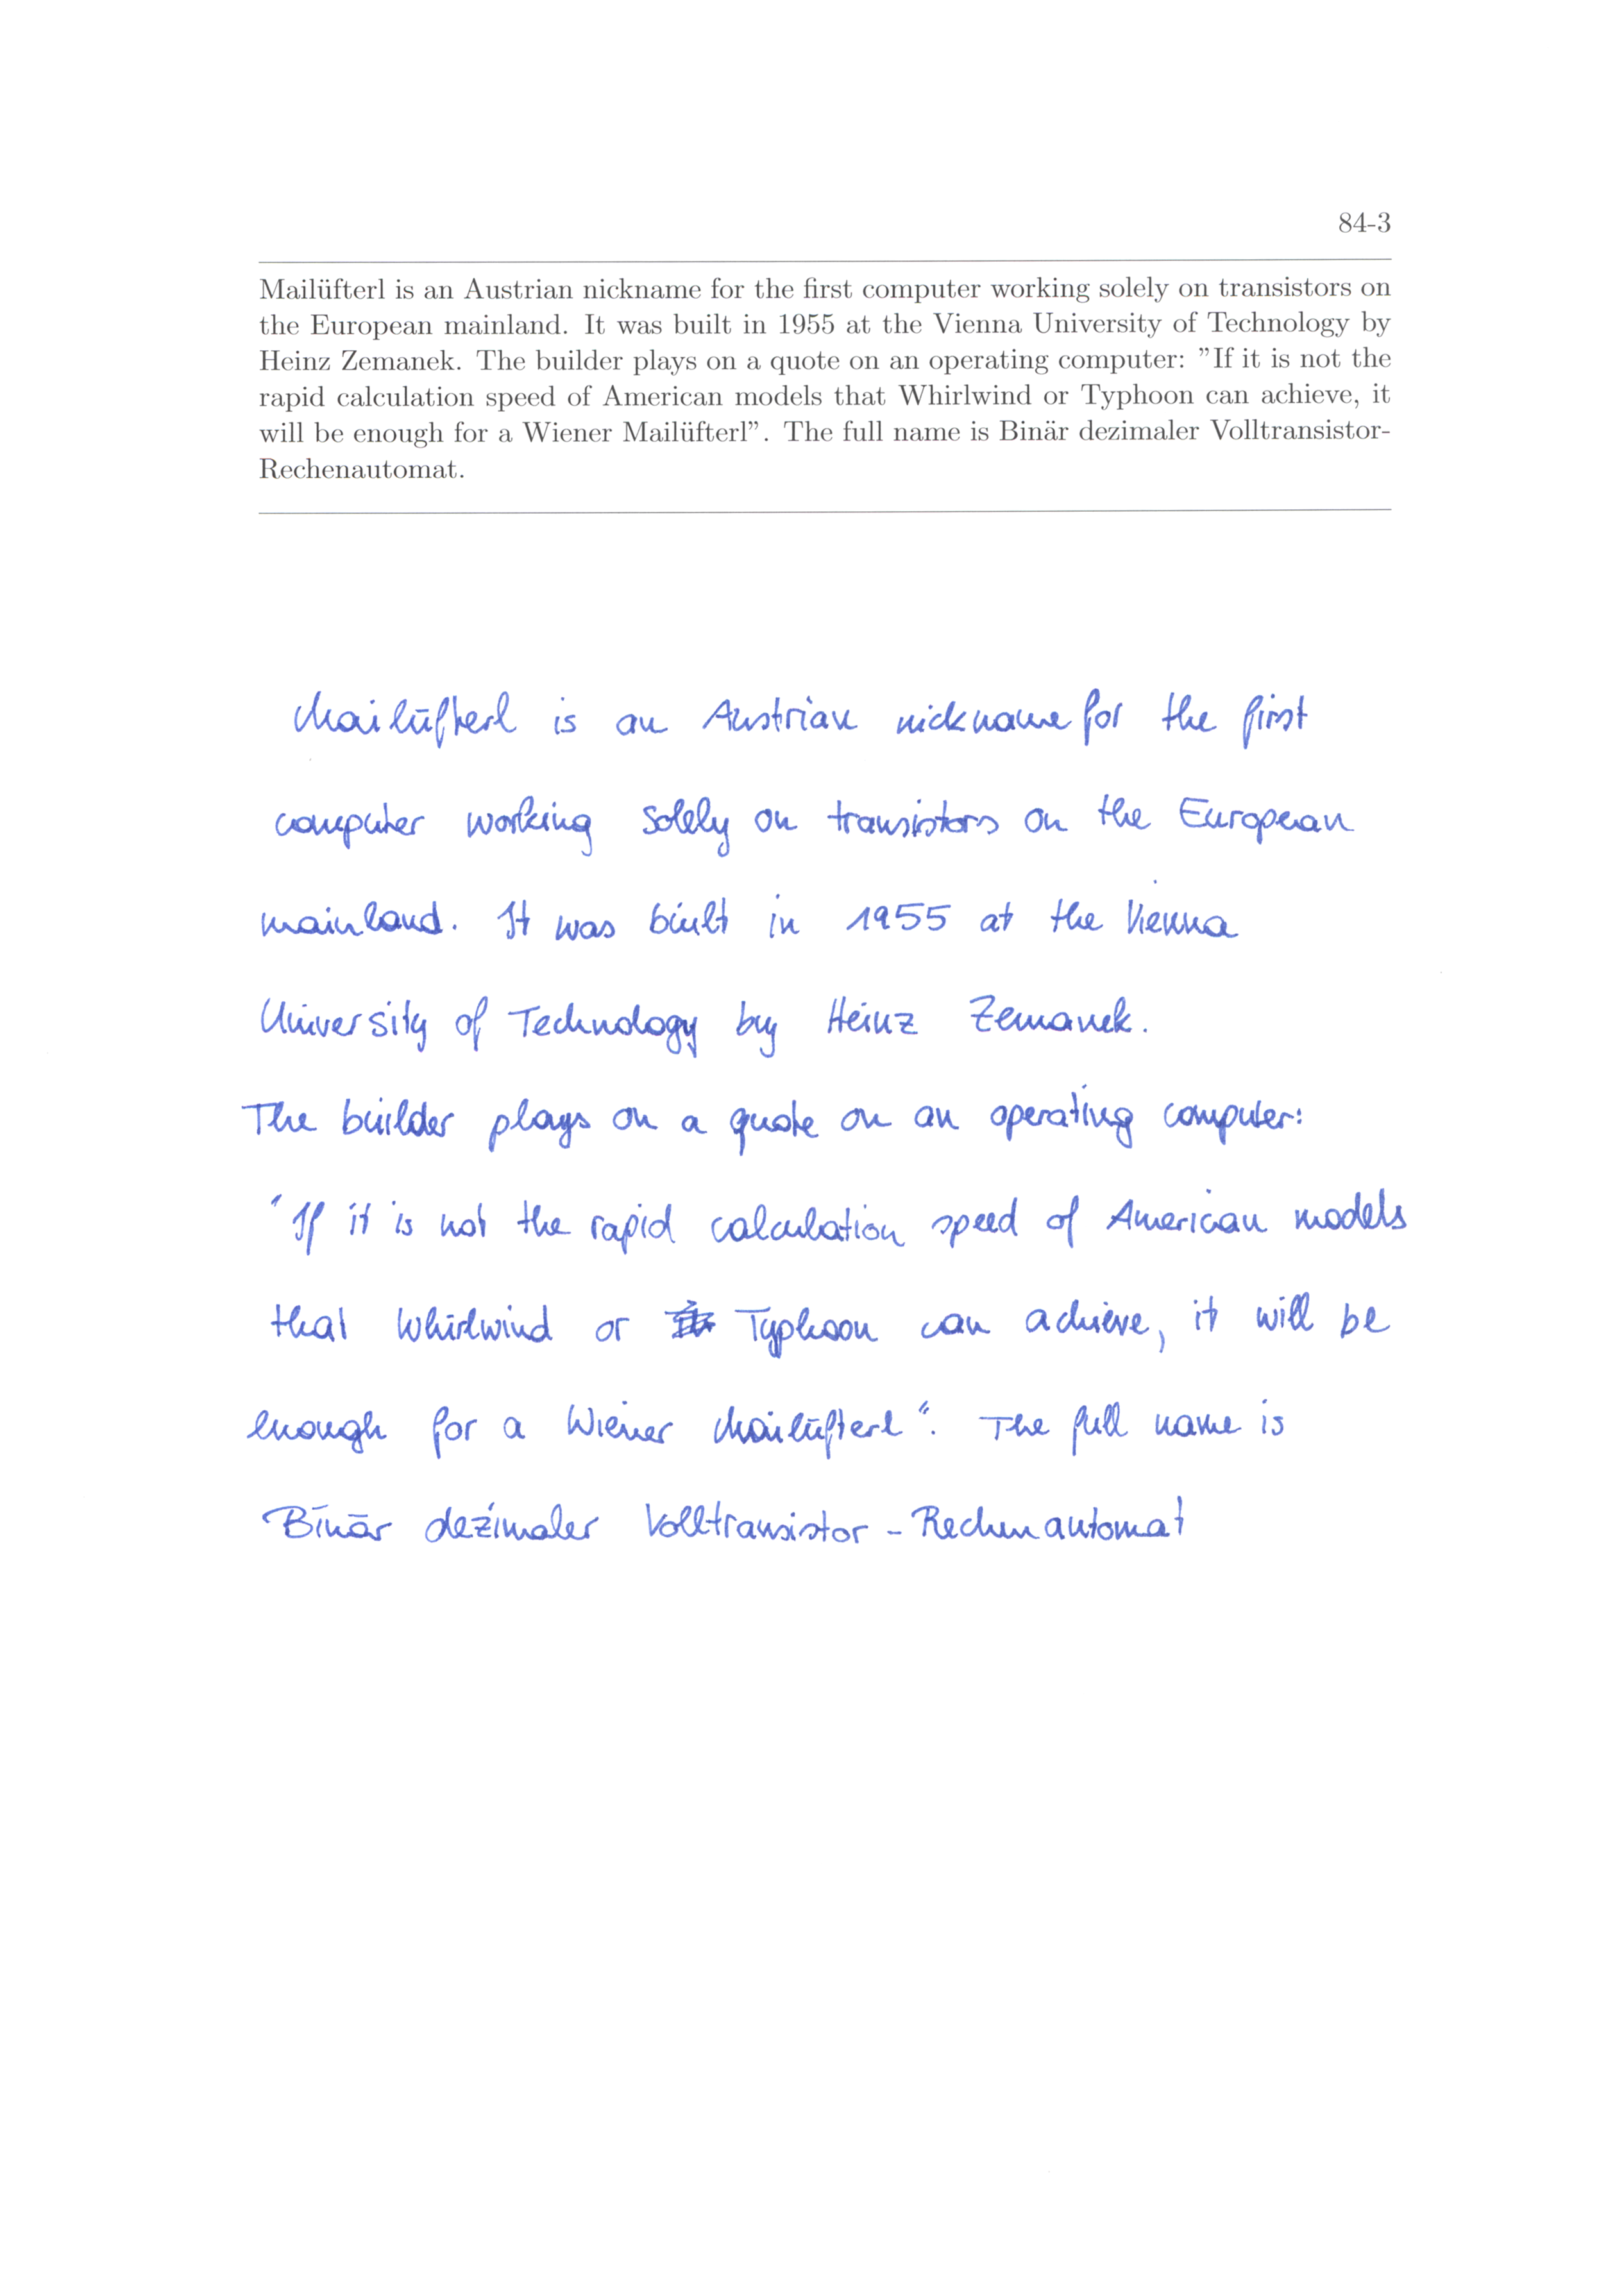 84-3
Mailüfterl is an Austrian nickname for the first computer working solely on transistors on
the European mainland. It was built in 1955 at the Vienna University of Technology by
Heinz Zemanek. The builder plays on a quote on an operating computer: ”If it is not the
rapid calculation speed of American models that Whirlwind or Typhoon can achieve, it
will be enough for a Wiener Mailüfterl”. The full name is Binär dezimaler Volltransistor-
Rechenautomat.
Mailüfterl is an Austrian nickname for the first
computer working solely on transistors on the European
mainland. It was built in 1955 at the Vienna
University of Technology by Heinz Zemanek.
The builder plays on a quote on an operating computer:
"If it is not the rapid calculation speed of American models
that Whirlwind or Typhoon can achieve, it will be
enough for a Wiener Mailüfterl". The full name is
Binär dezimaler Volltransistor - Rechenautomat